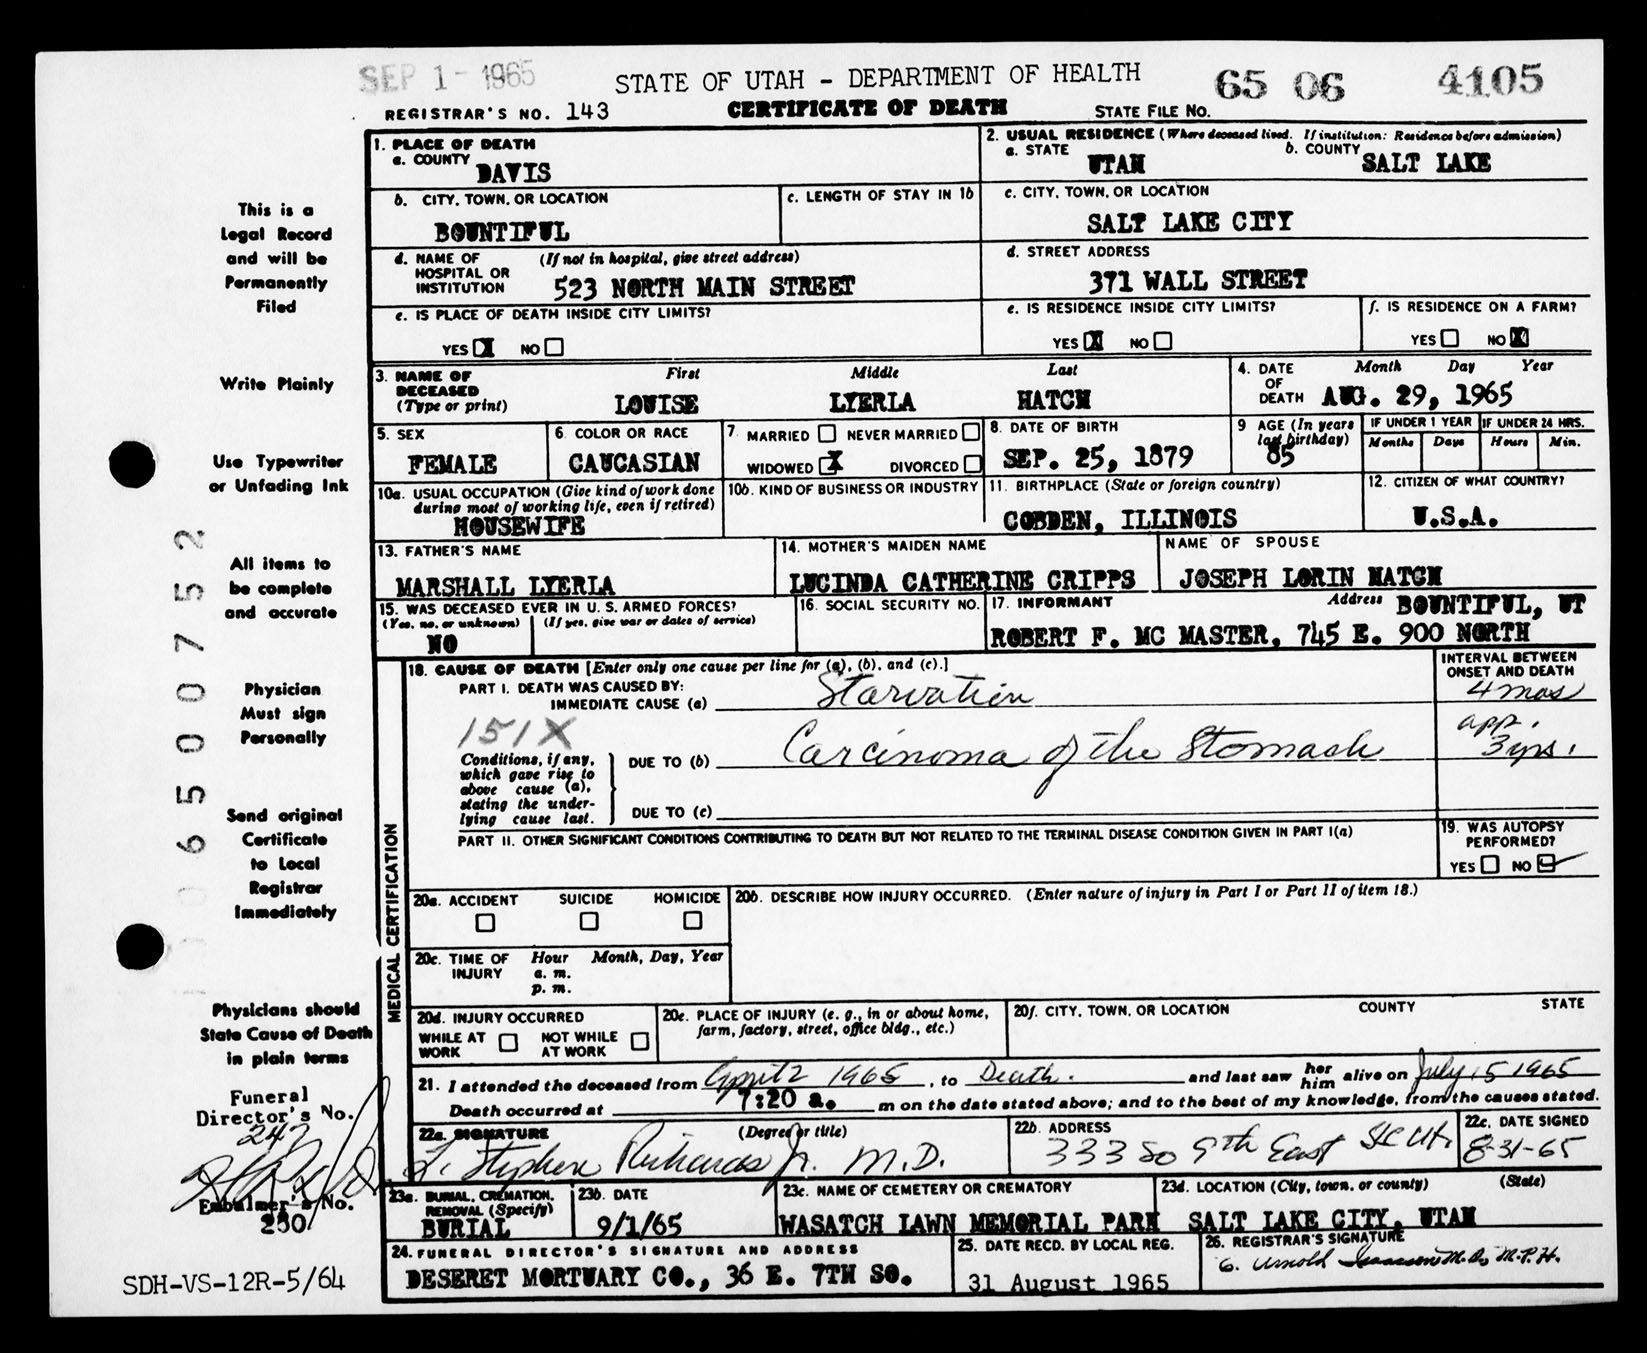 SEP 1 - 1965
STATE OF UTAH - DEPARTMENT OF HEALTH
65 06 4105
REGISTRAR'S NO. 143
CERTIFICATE OF DEATH
STATE FILE NO.
1. PLACE OF DEATH
a. COUNTY
DAVIS
2. USUAL RESIDENCE (Where deceased lived. If institution: Residence before admission)
a. STATE
UTAH
b. COUNTY
SALT LAKE
b. CITY, TOWN, OR LOCATION
BOUNTIFUL
c. LENGTH OF STAY IN 1b
c. CITY, TOWN, OR LOCATION
SALT LAKE CITY
d. NAME OF HOSPITAL OR INSTITUTION
(If not in hospital, give street address)
523 NORTH MAIN STREET
d. STREET ADDRESS
371 WALL STREET
e. IS PLACE OF DEATH INSIDE CITY LIMITS?
YES X NO
e. IS RESIDENCE INSIDE CITY LIMITS?
YES X NO
f. IS RESIDENCE ON A FARM?
YES NO X
3. NAME OF DECEASED (Type or print)
First Middle Last
LOUISE LYERLA HATCH
4. DATE OF DEATH
Month Day Year
AUG. 29, 1965
5. SEX
FEMALE
6. COLOR OR RACE
CAUCASIAN
7. MARRIED NEVER MARRIED
WIDOWED X DIVORCED
8. DATE OF BIRTH
SEP. 25, 1879
9 AGE (In years last birthday)
85
IF UNDER 1 YEAR
Months Days
IF UNDER 24 HRS.
Hours Min.
10a. USUAL OCCUPATION (Give kind of work done during most of working life, even if retired)
HOUSEWIFE
10b. KIND OF BUSINESS OR INDUSTRY
11. BIRTHPLACE (State or foreign country)
COBDEN, ILLINOIS
12. CITIZEN OF WHAT COUNTRY?
U.S.A.
13. FATHER'S NAME
MARSHALL LYERLA
14. MOTHER'S MAIDEN NAME
LUCINDA CATHERINE CRIPPS
NAME OF SPOUSE
JOSEPH LORIN HATCH
15. WAS DECEASED EVER IN U. S. ARMED FORCES?
(Yes, no, or unknown) (If yes, give war or dates of service)
NO
16. SOCIAL SECURITY NO.
17. INFORMANT Address BOUNTIFUL, UT
ROBERT F. MC MASTER, 745 E. 900 NORTH
MEDICAL CERTIFICATION
18. CAUSE OF DEATH [Enter only one cause per line for (a), (b), and (c).]
INTERVAL BETWEEN ONSET AND DEATH
PART I. DEATH WAS CAUSED BY:
IMMEDIATE CAUSE (a) Starvation
4 mos
151X
Conditions, if any, which gave rise to above cause (a), stating the underlying cause last.
DUE TO (b) Carcinoma of the Stomach
app. 3 yrs.
DUE TO (c)
PART II. OTHER SIGNIFICANT CONDITIONS CONTRIBUTING TO DEATH BUT NOT RELATED TO THE TERMINAL DISEASE CONDITION GIVEN IN PART I(a)
19. WAS AUTOPSY PERFORMED?
YES NO
20a. ACCIDENT SUICIDE HOMICIDE
20b. DESCRIBE HOW INJURY OCCURRED. (Enter nature of injury in Part I or Part II of item 18.)
20c. TIME OF INJURY
Hour Month, Day, Year
a. m.
p. m.
20d. INJURY OCCURRED
WHILE AT WORK NOT WHILE AT WORK
20e. PLACE OF INJURY (e. g., in or about home, farm, factory, street, office bldg., etc.)
20f. CITY, TOWN, OR LOCATION COUNTY STATE
21. I attended the deceased from April 2 1965, to Death. and last saw her him alive on July 15 1965
Death occurred at 7:20 a. m on the date stated above; and to the best of my knowledge, from the causes stated.
22a. SIGNATURE (Degree or title)
L. Stephen Richards Jr. M.D.
22b. ADDRESS
333 So 9th East SLC Ut.
22c. DATE SIGNED
8-31-65
23a. BURIAL, CREMATION, REMOVAL (Specify)
BURIAL
23b. DATE
9/1/65
23c. NAME OF CEMETERY OR CREMATORY
WASATCH LAWN MEMORIAL PARK
23d. LOCATION (City, town, or county) (State)
SALT LAKE CITY, UTAH
24. FUNERAL DIRECTOR'S SIGNATURE AND ADDRESS
DESERET MORTUARY CO., 36 E. 7TH SO.
25. DATE RECD. BY LOCAL REG.
31 August 1965
26. REGISTRAR'S SIGNATURE
C. Arnold Isaacson M.D., M.P.H.
This is a
Legal Record
and will be
Permanently
Filed
Write Plainly
Use Typewriter
or Unfading Ink
All items to
be complete
and accurate
Physician
Must sign
Personally
Send original
Certificate
to Local
Registrar
Immediately
Physicians should
State Cause of Death
in plain terms
Funeral
Director's No.
247
Embalmer's No.
250
SDH-VS-12R-5/64
0650 0752